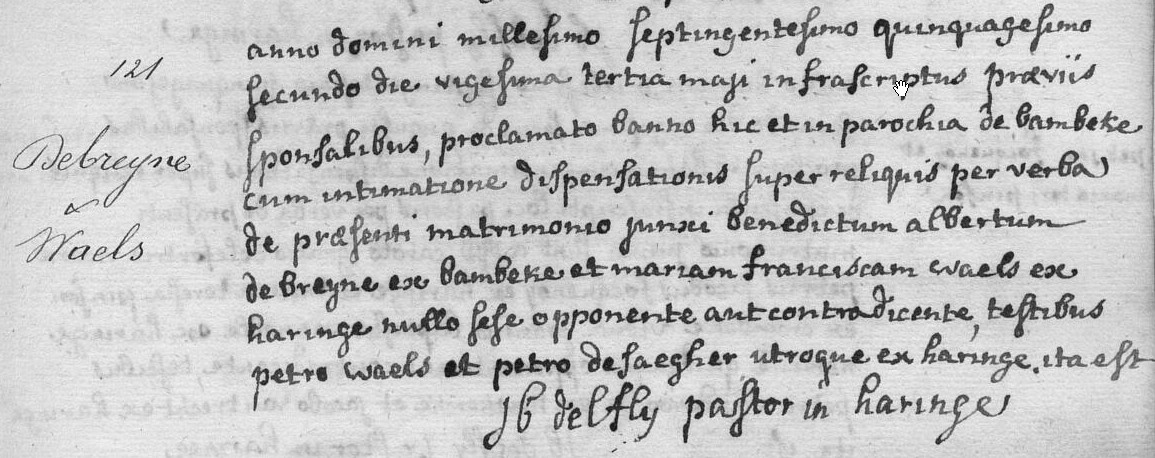 anno domini millesimo septingentesimo quinquagesimo
121
secundo die vigesima tertia maji infrascriptus præviis
sponsalibus, proclamato banno hic et in parochia de bambeke
Debreyne
cum intimatione dispensationis super reliquis per verba
de præsenti matrimonio junxi benedictum albertum
Waels
de breyne ex bambeke et mariam franciscam waels ex
haringe nullo sese opponente aut contradicente, testibus
petro waels et petro desaegher, utroque ex haringe. ita est
J b delfly pastor in haringe